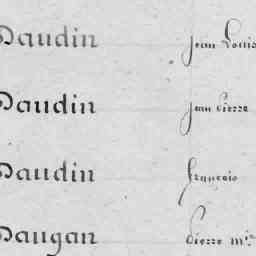 Daudin Jean Louis
Daudin Jean Pierre
Daudin François
Daugan Pierre M.